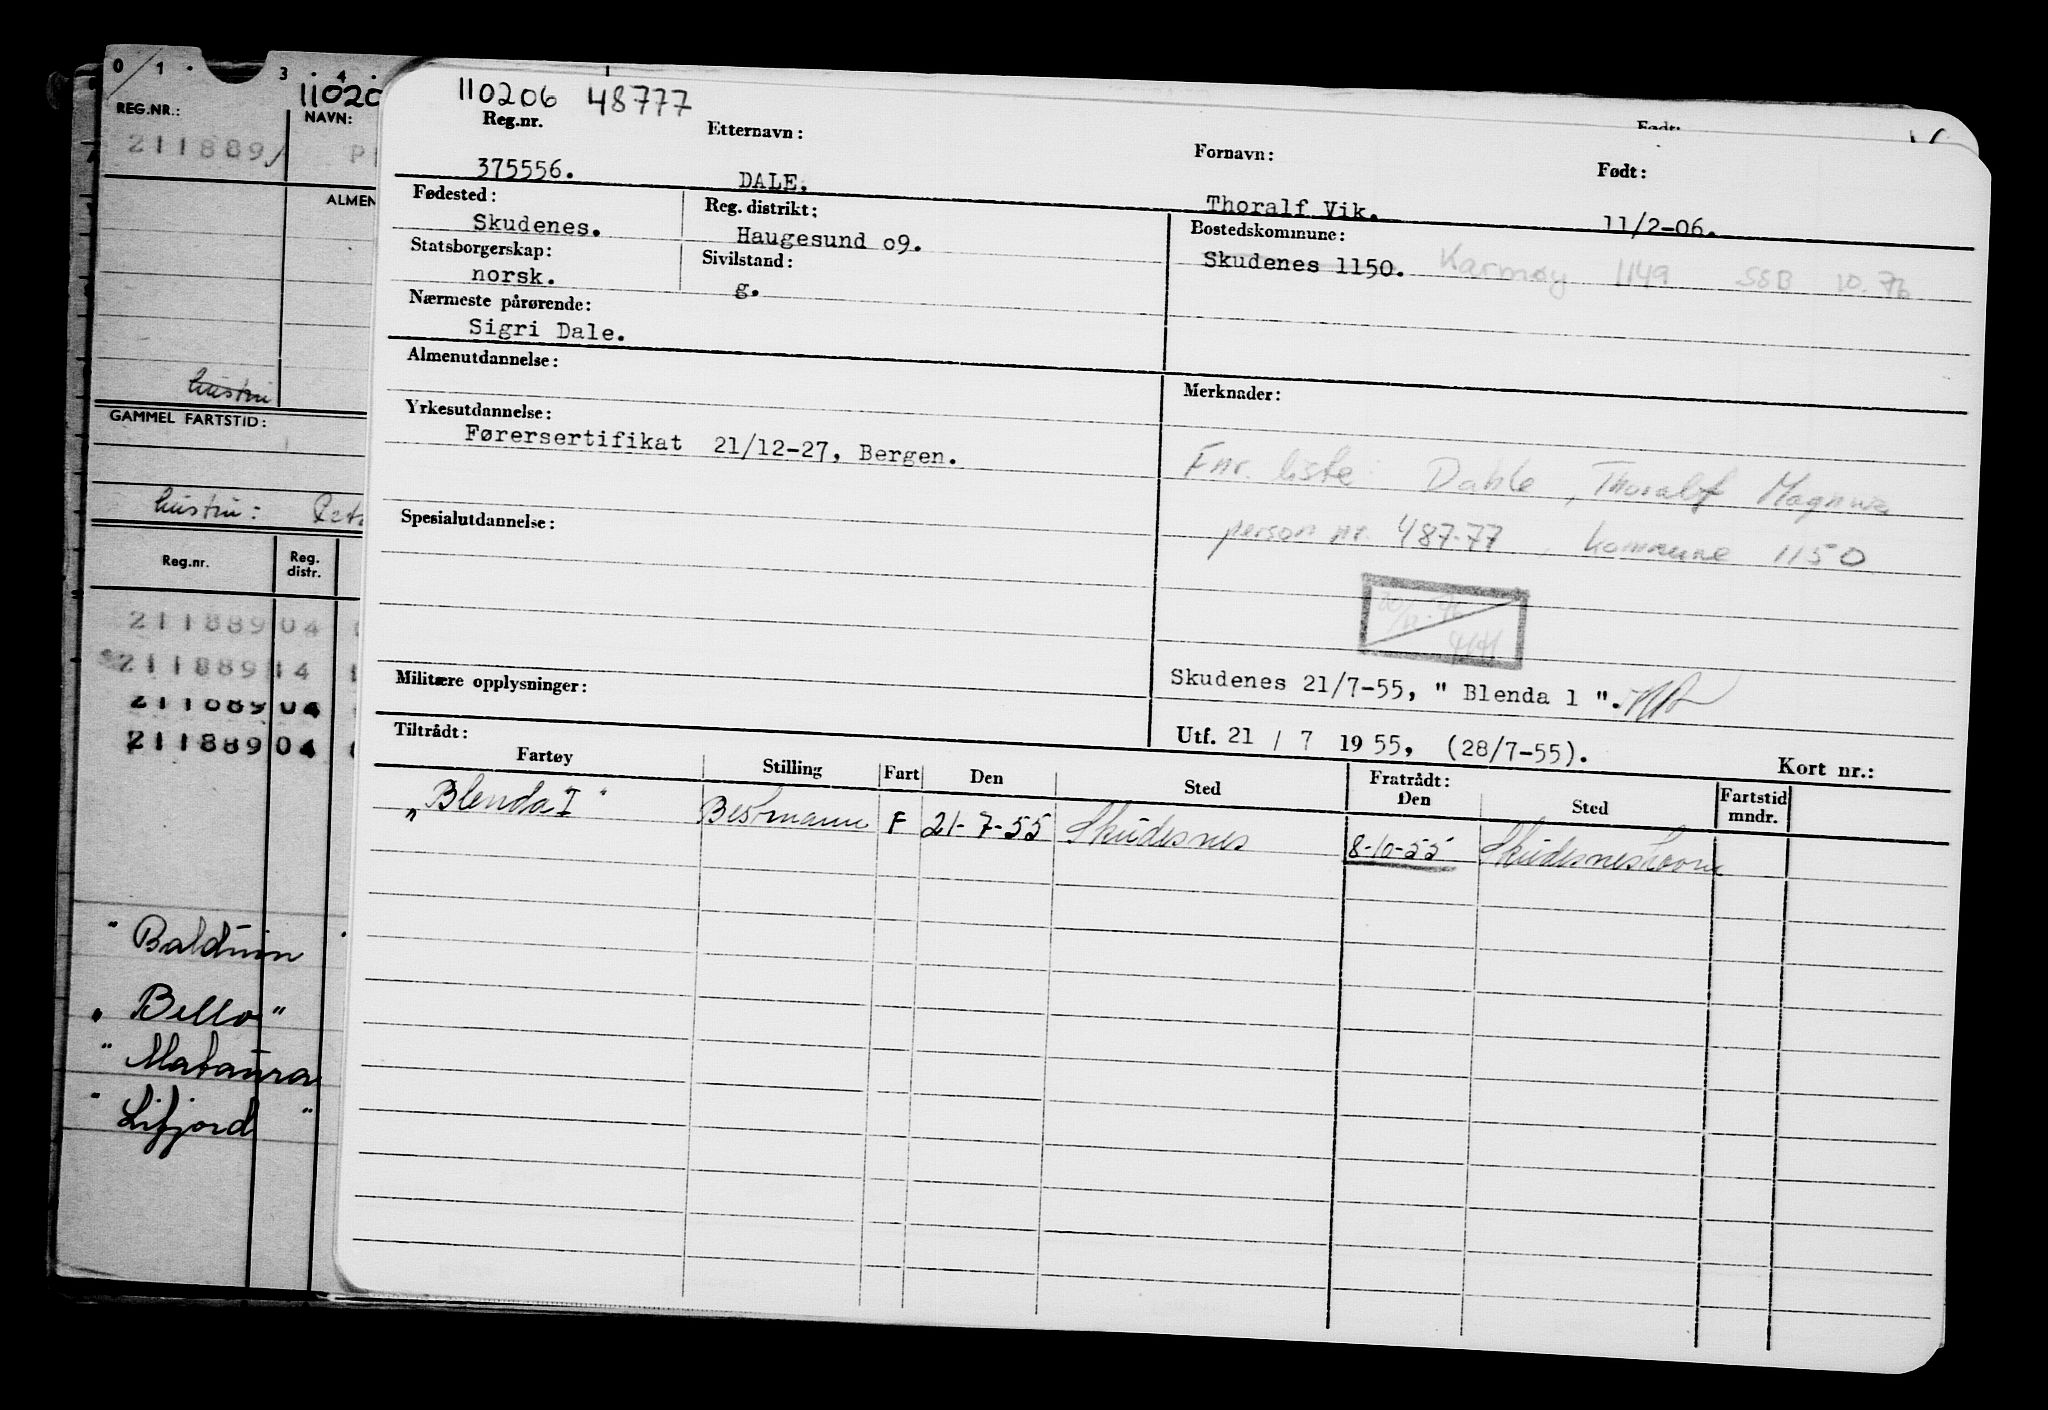 0 1 . 3 . 4 .
11020
REG.NR.: NAVN:
211889
ALMEN
hustru
GAMMEL FARTSTID:
hustru:
Reg.nr. Reg. distr.
211889 04
211889 14
211889 04
211889 04
" Balduin
" Bello "
" Mataura
" Lifjord "
110206 48777
Født:
Reg.nr. Etternavn: Fornavn: Født:
375556. DALE. Thoralf Vik. 11/2-06.
Fødested: Reg. distrikt: Bostedskommune:
Skudenes. Haugesund o9. Skudenes 1150. Karmøy 1149 SSB 10.76
Statsborgerskap: Sivilstand:
norsk. g.
Nærmeste pårørende:
Sigri Dale.
Almenutdannelse: Merknader:
Yrkesutdannelse:
Førersertifikat 21/12-27, Bergen.
Fnr. liste: Dahle, Thoralf Magnus
person nr. 487.77, kommune 1150
Spesialutdannelse:
Militære opplysninger:
Skudenes 21/7-55, " Blenda 1 ".
Utf. 21 / 7 1955, (28/7-55). Kort nr.:
Tiltrådt: Fratrådt:
Fartøy Stilling Fart Den Sted Den Sted Fartstid mndr.
"Blenda I" Bestmann F 21-7-55 Skudesnes 8-10-55 Skudesneshavn